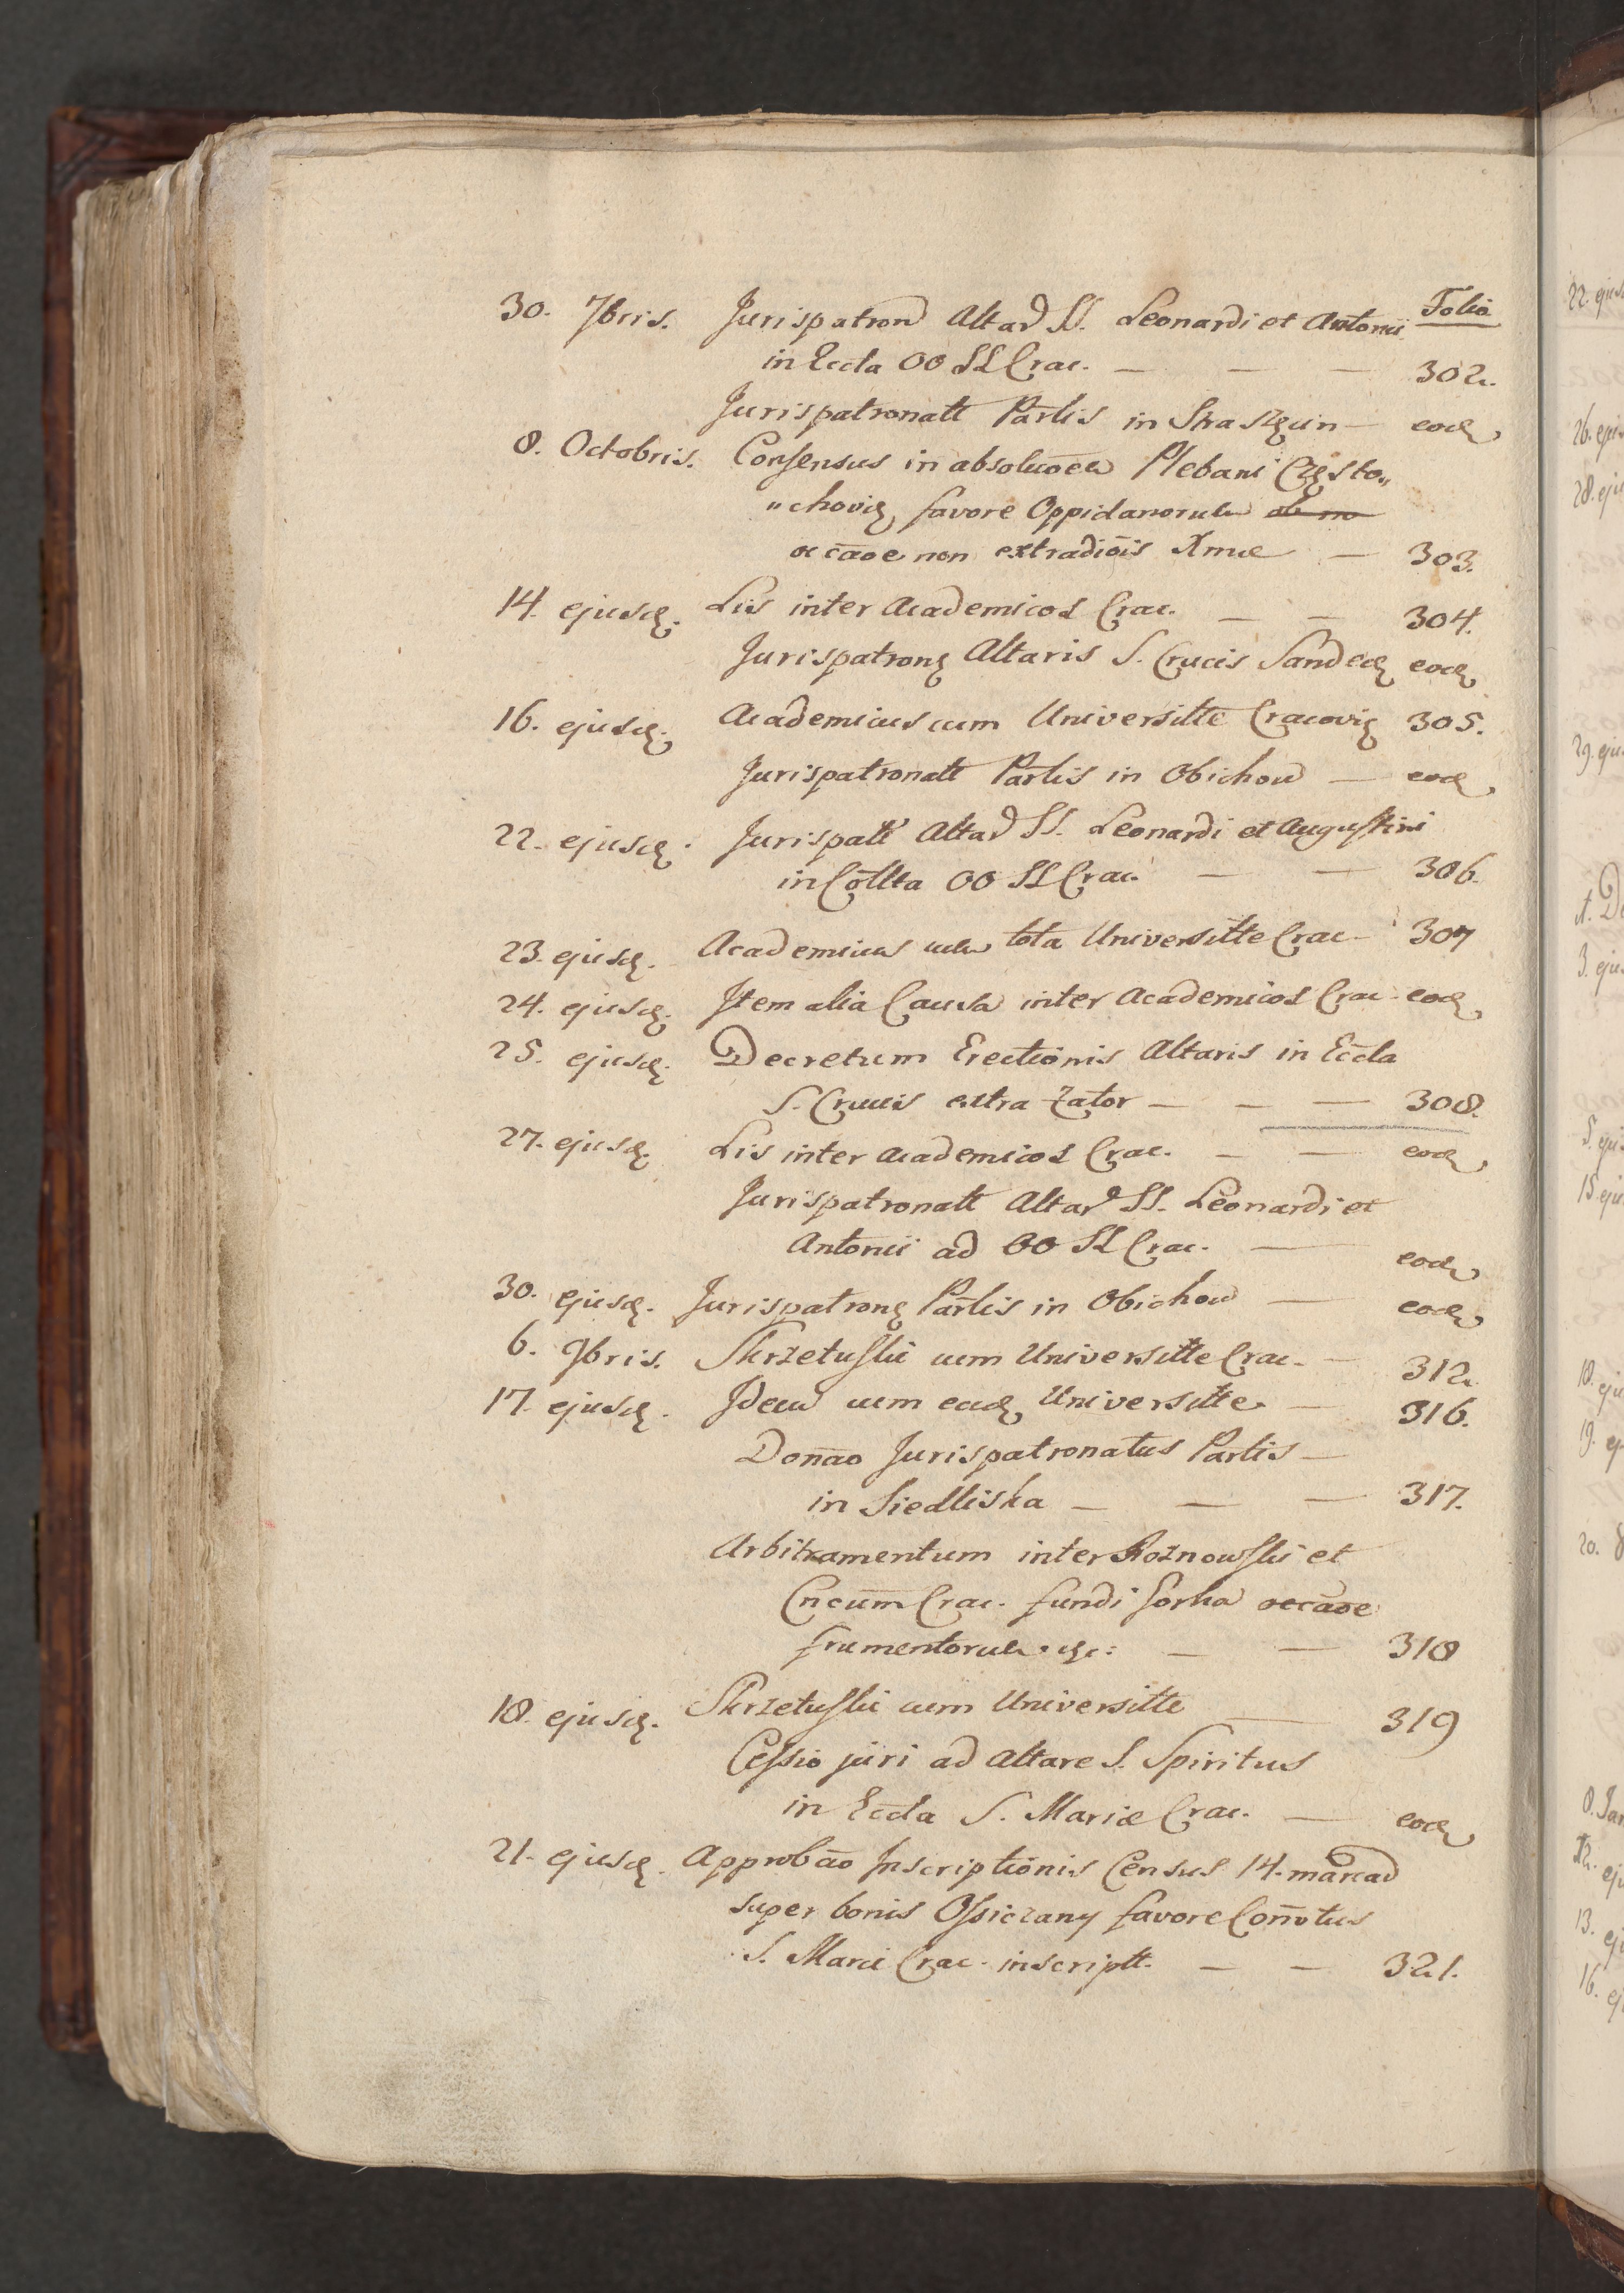 Folio
30. 7bris. Jurispatron Altar SS. Leonardi et Antonii
in Eccla OO SS Crac. — — — 302.
Jurispatronatt Partis in Straszęcin — eodę
8. Octobris. Consensus in absolucōem Plebani Często„
„chovię favore Oppidanorum
occāoe non extradiōis Xmae — 303.
14. ejusdę. Lis inter Academicos Crac. — — 304.
Jurispatronę Altaris S. Crucis Sandecę eodę
16. ejusdę. Academicus cum Universitte Cracovię 305.
Jurispatronatt Partis in Obichow — eodę
22. ejusdę. Jurispatt Altar SS. Leonardi et Augustini
in Collta OO SS Crac. — — 306.
23. ejusdę. Academicus cum tota Universitte Crac. 307
24. ejusdę. Item alia Causa inter Academicos Crac. eodę
25. ejusdę. Decretum Erectionis Altaris in Eccla
S. Crucis extra Zator — — — 308.
27. ejusdę. Lis inter Academicos Crac. — — eodę
Jurispatronatt Altar SS. Leonardi et
Antonii ad OO SS Crac. — eodę
30. ejusdę. Jurispatronę Partis in Obichow — eodę
6. 9bris. Skrzetuski cum Universitte Crac. — 312.
17. ejusdę. Idem cum eadę Universitte — 316.
Donāo Jurispatronatus Partis —
in Siedliska — — — 317.
Arbitramentum inter Rożnowski et
Cncum Crac. fundi Gorka occāoe
frumentorum &c: — — 318
18. ejusdę. Skrzetuski cum Universitte — 319
Cessio juri ad Altare S. Spiritus
in Eccla S. Mariæ Crac. — eodę
21. ejusdę. Approbāo Inscriptionis Census 14. marcar
super bonis Ossiczany favore Conñtus
S. Marci Crac. inscriptt. — — 321.